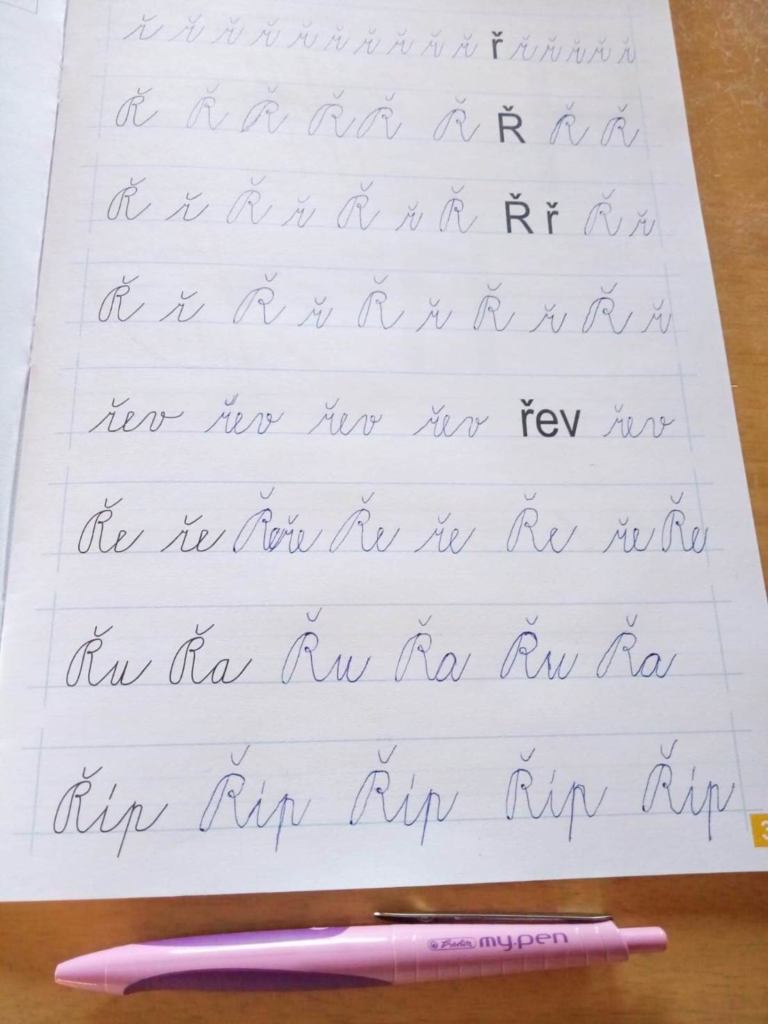 ř ř ř ř ř ř ř ř ř ř ř ř ř ř ř ř
Ř Ř Ř Ř Ř Ř Ř Ř Ř
Ř ř Ř ř Ř ř Ř Ř ř Ř ř
Ř ř Ř ř Ř ř Ř ř Ř ř
řev řev řev řev řev řev
Ře ře Ře ře Ře ře Ře ře Ře
Řu Řa Řu Řa Řu Řa
Říp Říp Říp Říp Říp
3
Herlitz my.pen